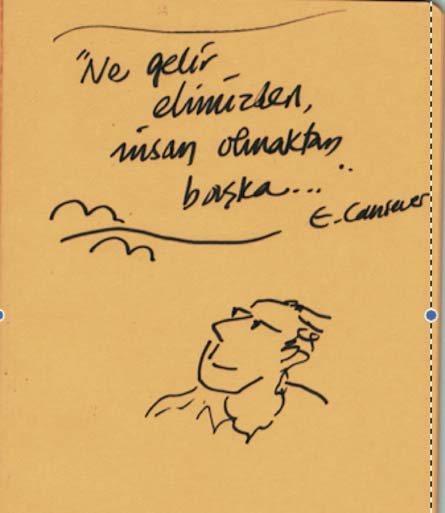 "Ne gelir
elimizden,
insan olmaktan
başka..."
E. Cansever